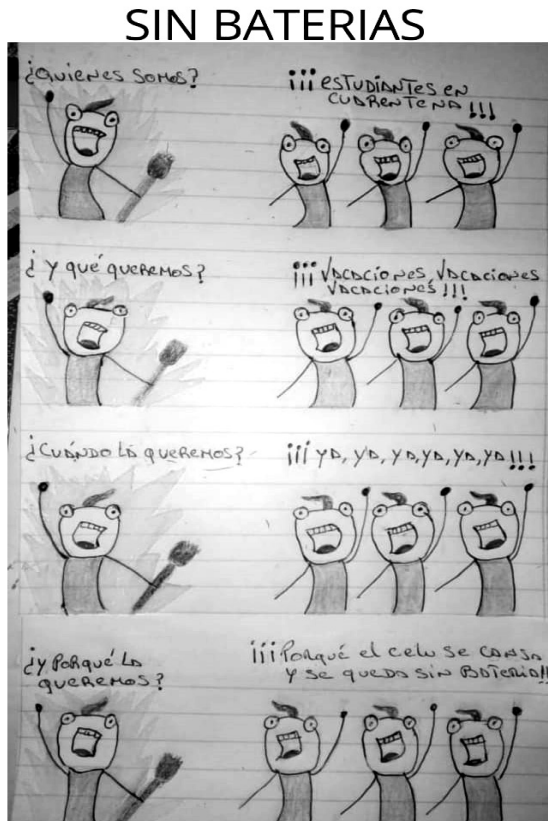 SIN BATERIAS
¿Quienes somos?
¡¡¡estudiantes en
cuarentena!!!
¿Y qué queremos?
¡¡¡Vacaciones, vacaciones
vacaciones!!!
¿Cuándo la queremos?
¡¡¡ya, ya, ya, ya, ya, ya!!!
¿y Porqué la
queremos?
¡¡¡Porqué el celu se cansa
y se queda sin bateria!!